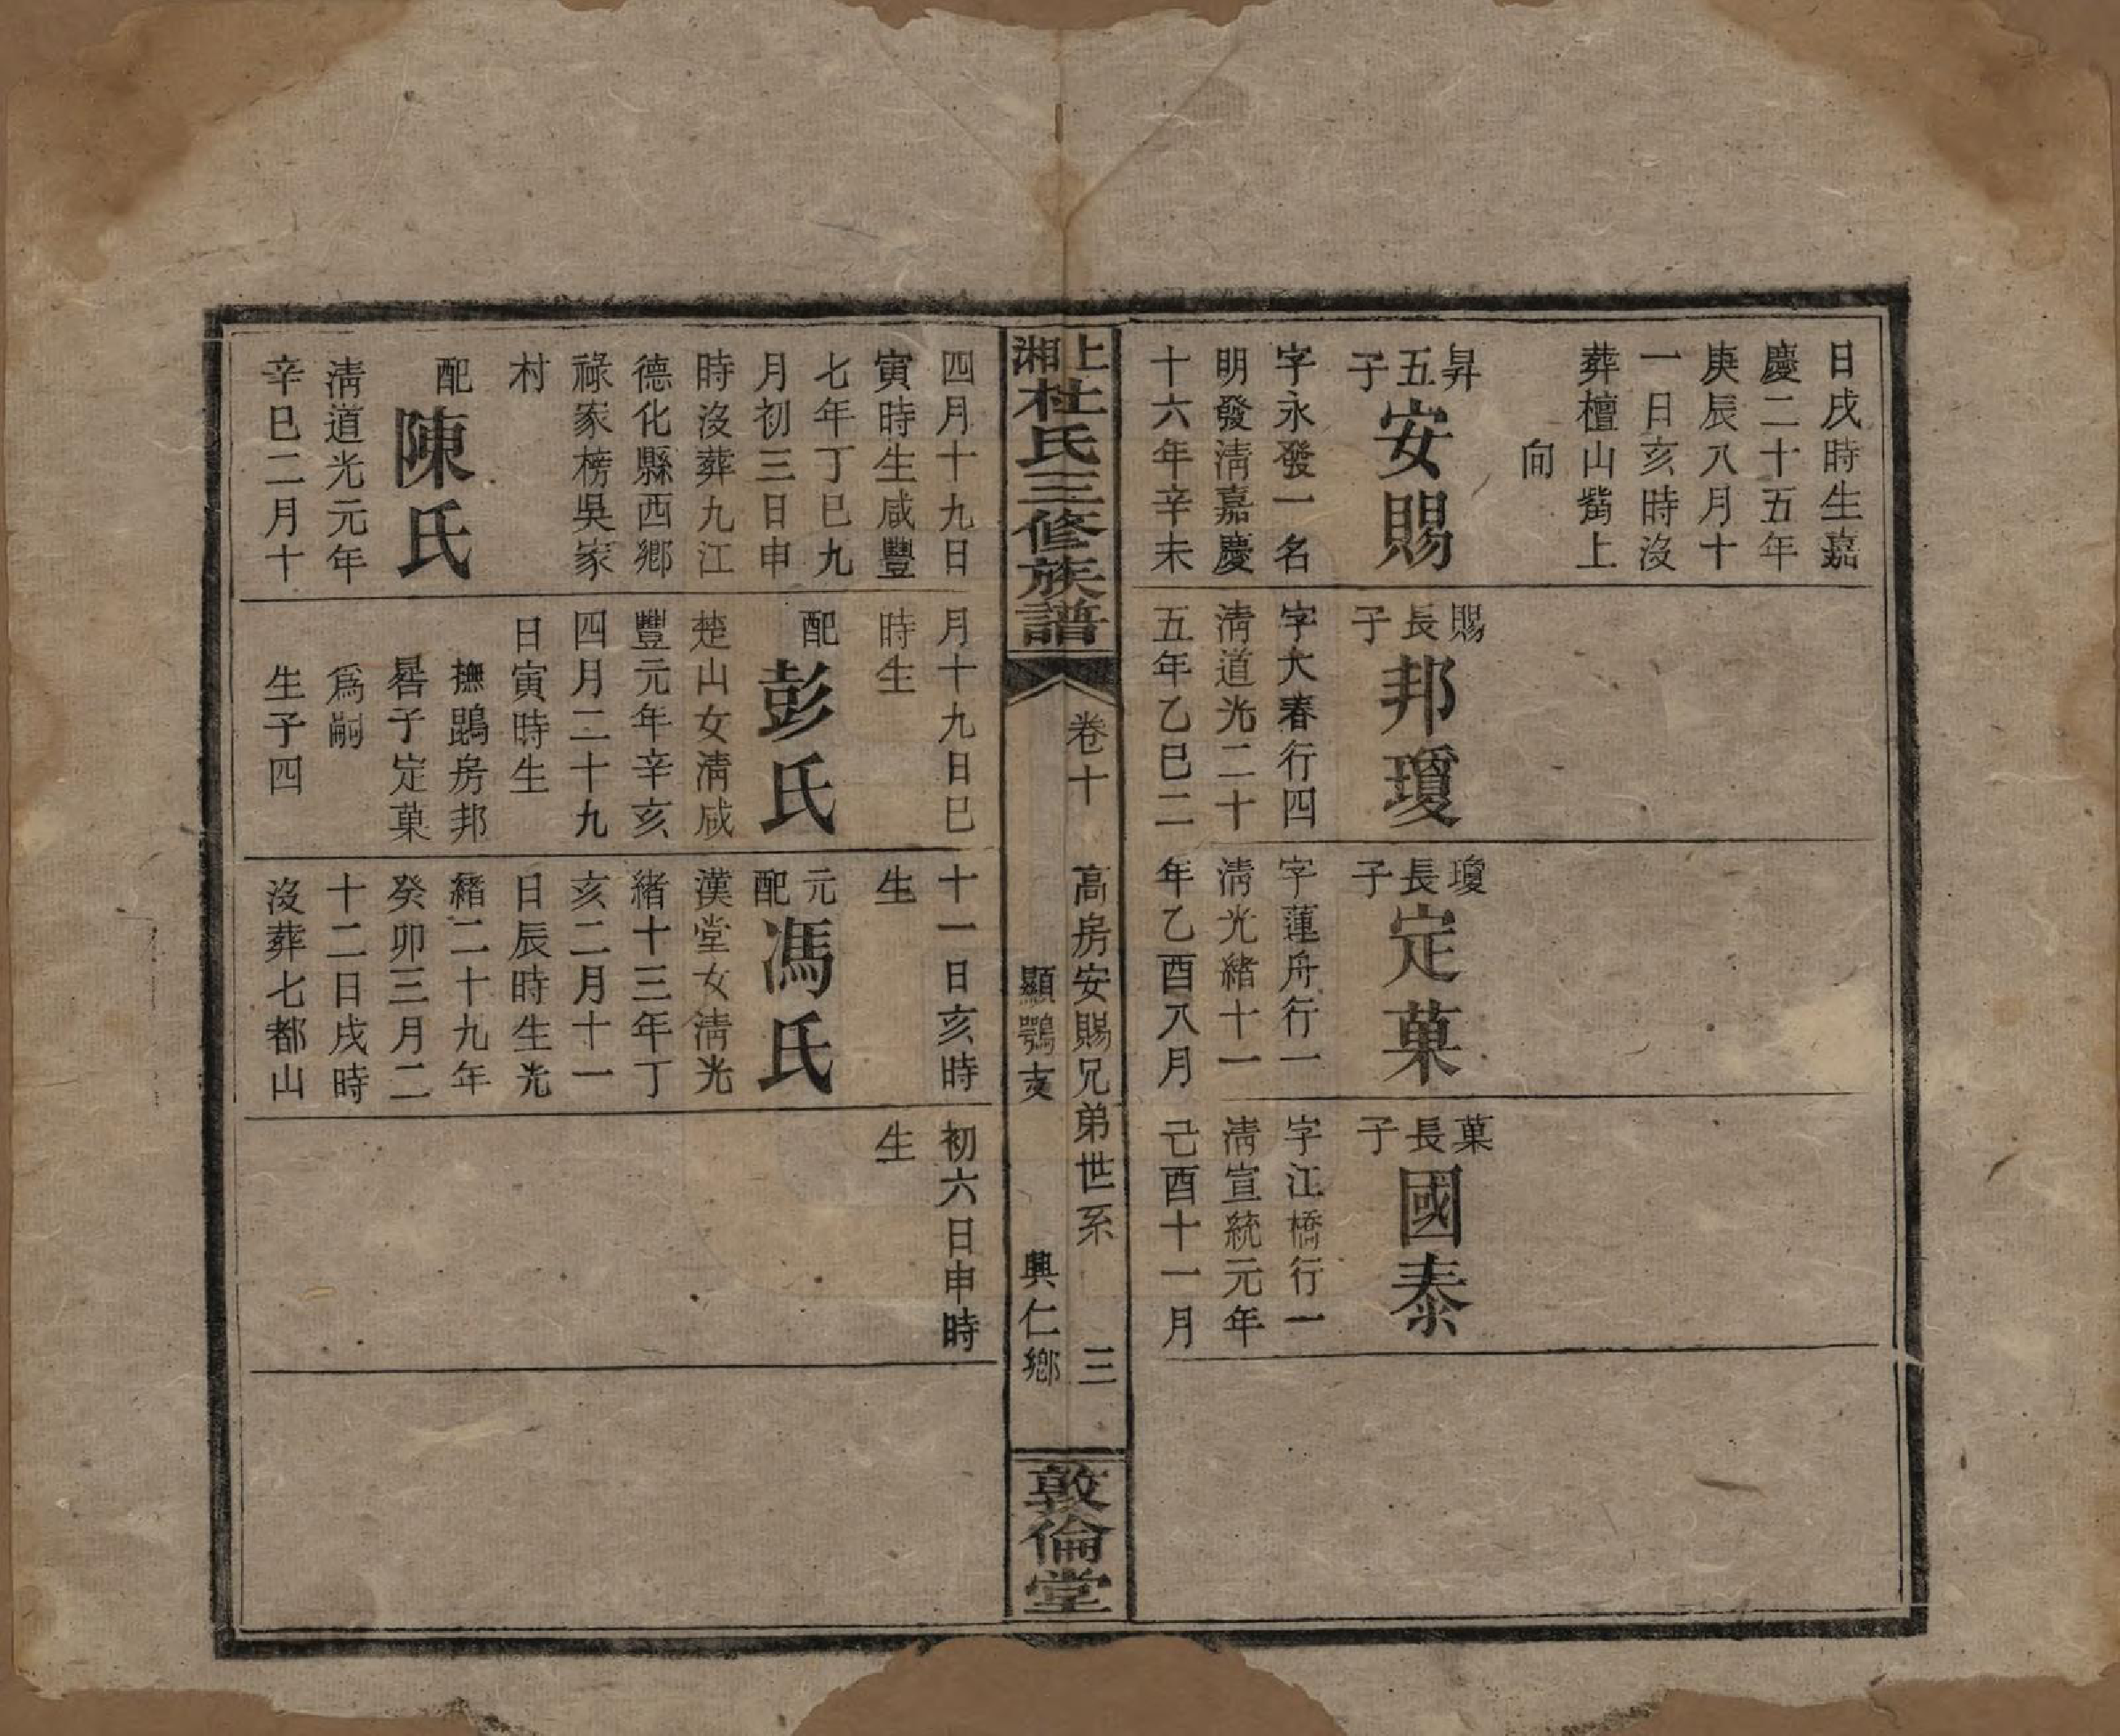 日戌時生嘉
慶二十五年
庚辰八月十
一日亥時沒
葬檀山觜上
向
昇五子安賜
字永發一名
明發清嘉慶
十六年辛未
賜長子邦瓊
字大春行四
清道光二十
五年乙巳二
瓊長子定菓
字蓮舟行一
清光緒十一
年乙酉八月
菓長子國泰
字江橋行一
清宣統元年
己酉十一月
上湘杜氏三修族譜
卷十 高房安賜兄弟世系 三
顯鶚支 興仁鄉
敦倫堂
四月十九日
寅時生咸豐
七年丁巳九
月初三日申
時沒葬九江
德化縣西鄉
祿家榜吳家
村
配陳氏
清道光元年
辛巳二月十
月十九日巳
時生
配彭氏
楚山女清咸
豐元年辛亥
四月二十九
日寅時生
撫鵾房邦
晷子定菓
爲嗣
生子四
十一日亥時
生
元配馮氏
漢堂女清光
緒十三年丁
亥二月十一
日辰時生光
緒二十九年
癸卯三月二
十二日戌時
沒葬七都山
初六日申時
生